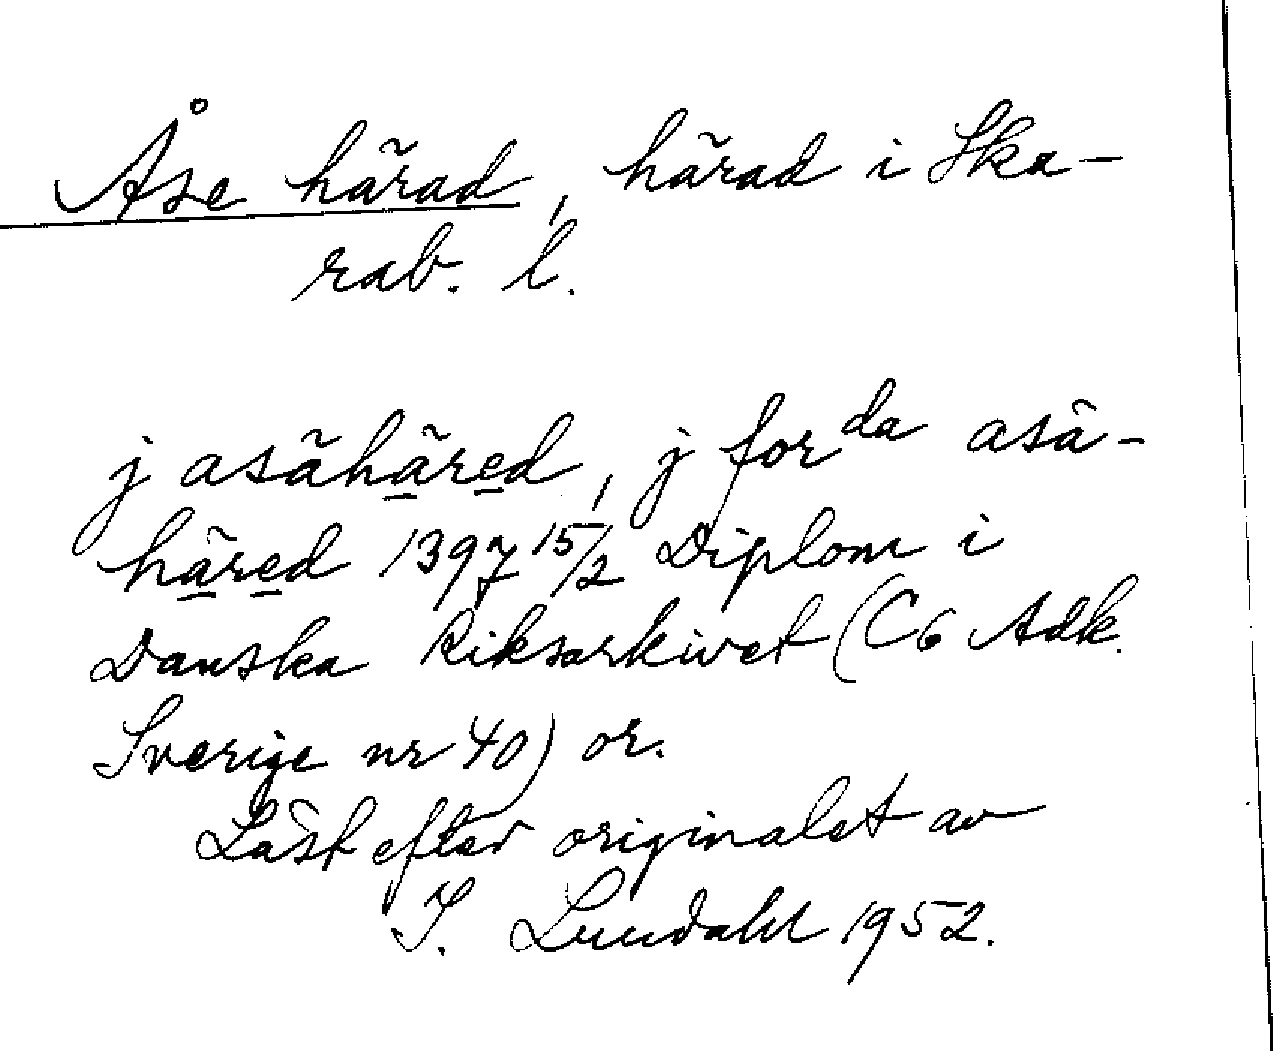 Åse härad, härad i Ska-
rab. l.
j asähäred, j for da asä-
häred 1397 15/2 Diplom i
Danska Riksarkivet (C6 Adk.
Sverige nr 40) or.
Läst efter originalet av
I. Lundahl 1952.